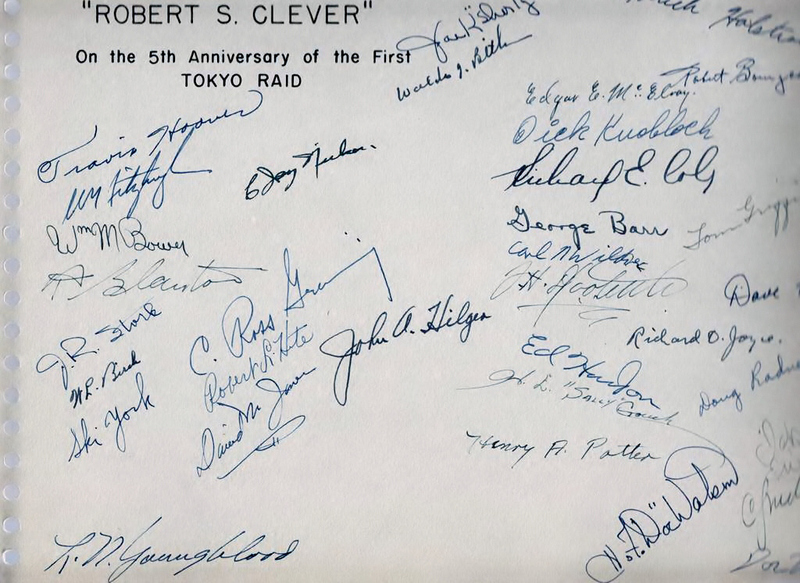 "ROBERT S. CLEVER"
On the 5th Anniversary of the First
TOKYO RAID
Halstea
Waldo J. Bither
Robert Bourgeo
Edgar E. McElroy.
Travis Hoover
Dick Knobloch
Wm Fitzhugh
Richard E. Cole
George Barr
Tom Griffi
Wm M Bower
Carl N Wildner
Dave
J.R. Stork
C. Ross Greening
Robert L. Hite
John A. Hilger
Richard O. Joyce.
W.L. Birch
Ed Horton
Doug Radne
Ski York
David M. Jones
H. E. "Sally" Crouch
Henry A. Potter
H.F. "Doc" Watson
L.N. Youngblood